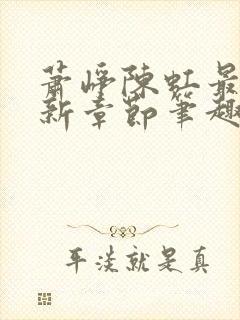 萧峥陈虹最
新章节笔趣
平淡就是真